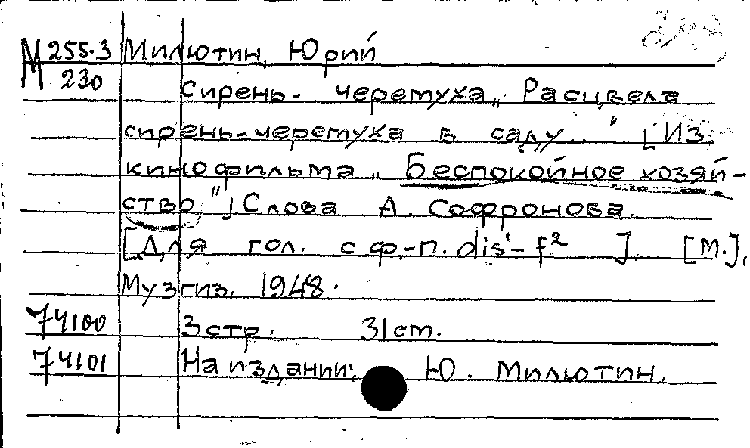 М 255-3 Милютин Юрий
230
Сирень-черемуха „Расцвела
сирень-черемуха в саду..." [Из
кинофильма „Беспокойное хозяй-
ство"] Слова А. Софронова.
[Для гол. с ф-п. dis¹-f² ]. [М.],
Музгиз. 1948.
74100 3 стр. 31 cm.
74101 На издании: Ю. Милютин.